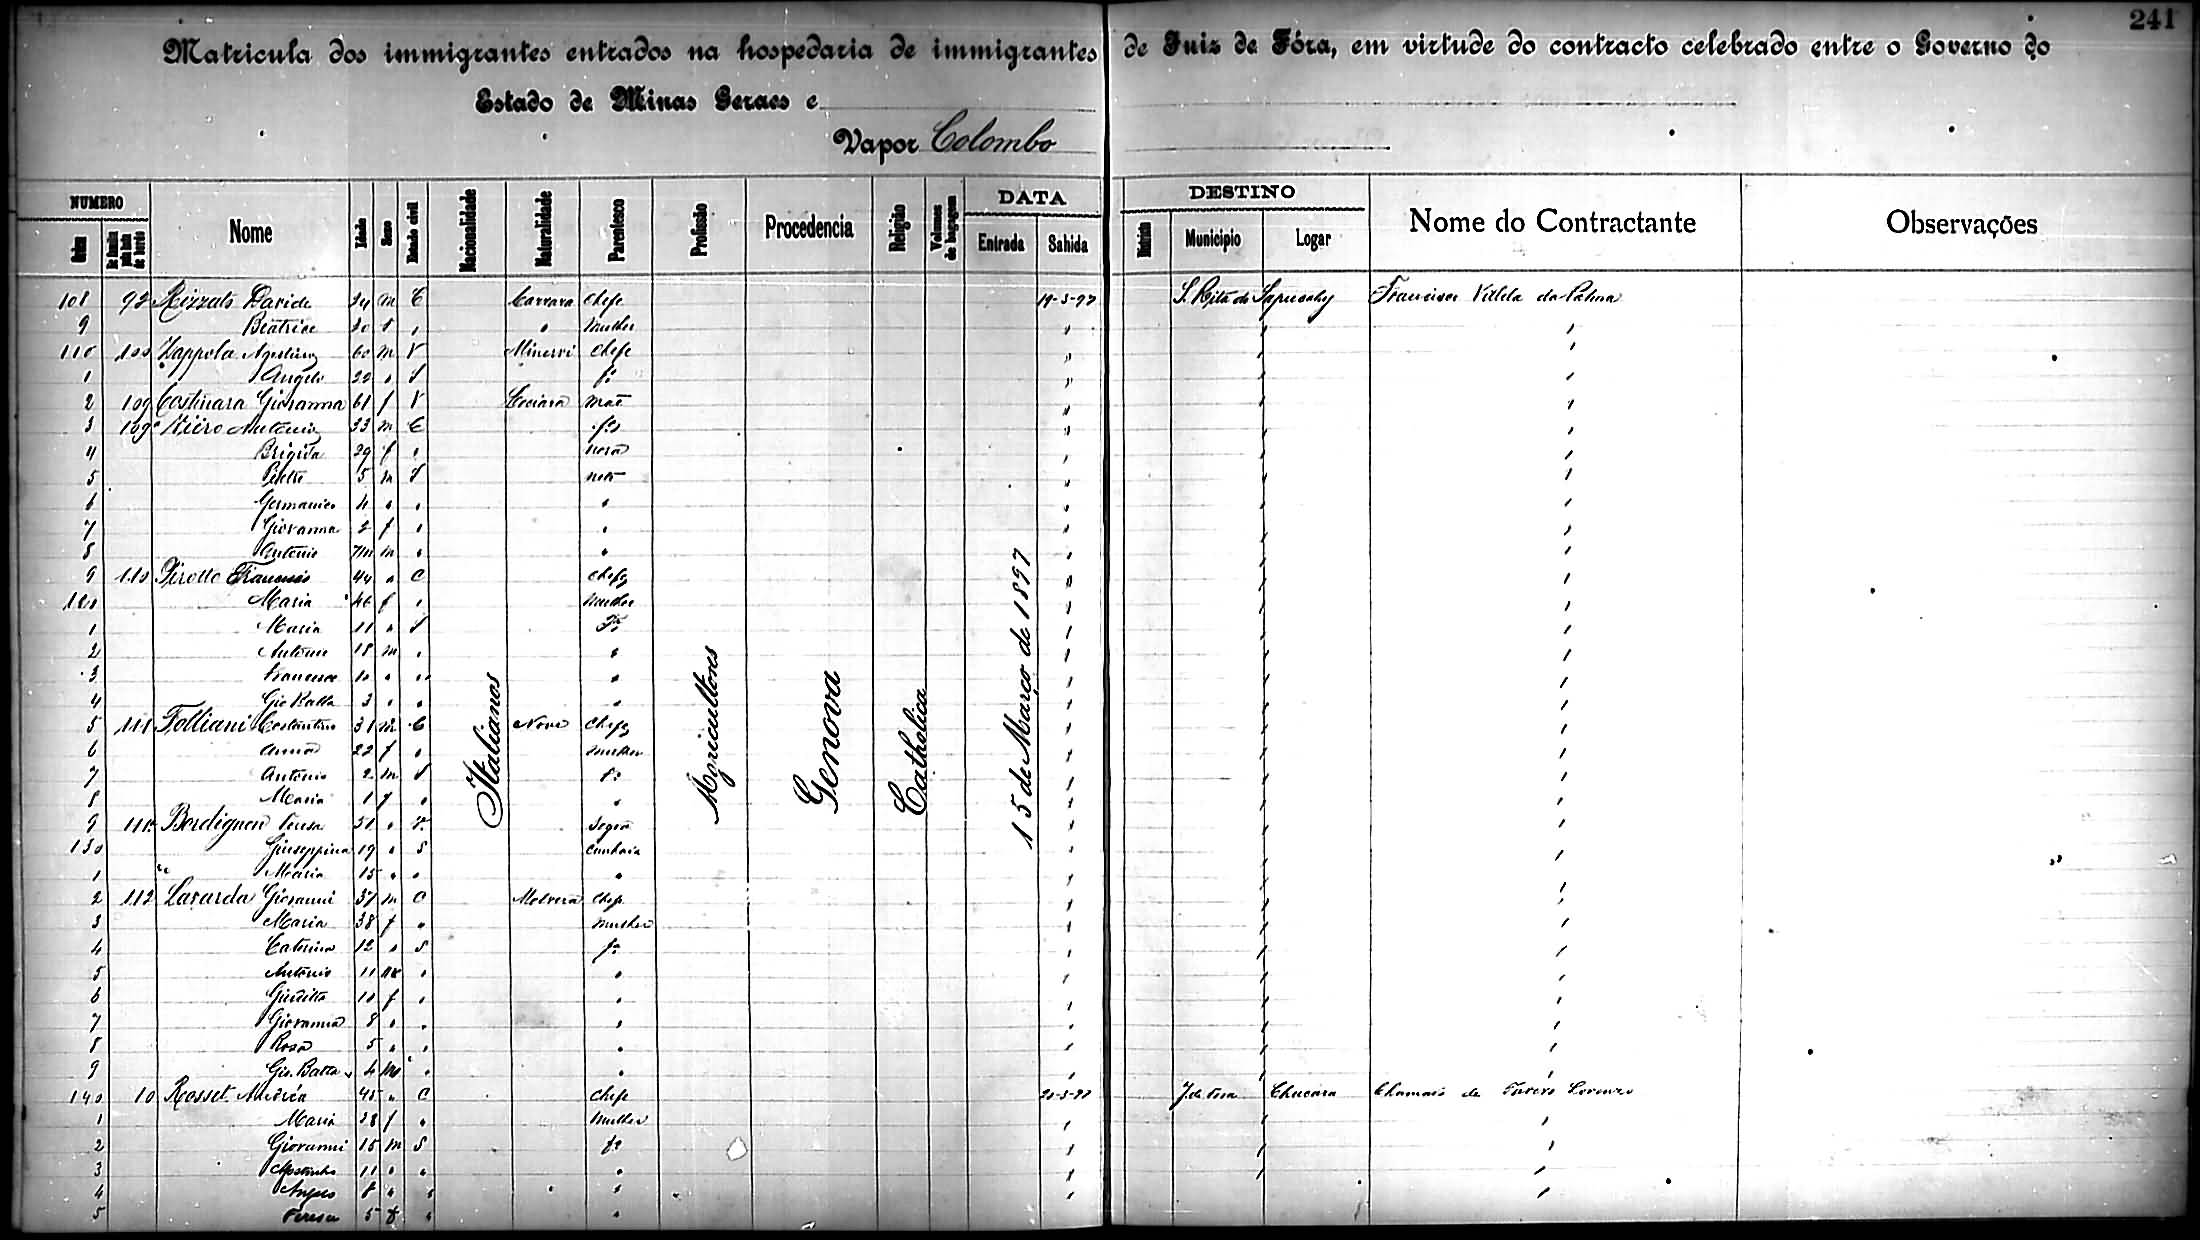 241
Matricula dos immigrantes entrados na hospedaria de immigrantes de Juiz de Fóra, em virtude do contracto celebrado entre o Governo do
Estado de Minas Geraes e
Vapor Colombo
NUMERO Nome Idade Sexo Estado civil Nacionalidade Naturalidade Parentesco Profissão Procedencia Religião Volumes de bagagem DATA DESTINO Nome do Contractante Observações
Ordem Entrada Sahida Districto Municipio Logar
Italianos Agricultores Genova Catholica 15 de Março de 1897
108 92 Davide 24 m C Carrara Chefe 19-3-97 S. Rita do Sapucahy Francisco Villela da Palma
9 Beatrice 20 f " " Mulher "
110 100 Zappola 60 m V Minervi Chefe "
1 Angelo 20 " S fº "
2 109 Giovanna 61 f V Mae "
3 109 Antonio 33 m C fº "
4 Brigida 29 f " nora "
5 5 m S neto "
6 Germanico 4 " " "
7 Giovanna 2 f " "
8 Antonio 7m m " "
9 110 Pirollo Francesco 44 " C Chefe "
120 Maria 46 f " Mulher
1 Maria 11 " S Fª
2 Antonio 18 m " "
3 Francesco 10 " " "
4 Gio Batta 3 " " "
5 111 Folliani Costantino 31 m C Nove Chefe
6 Anna 22 f " mulher
7 Antonio 2 m S fº
8 Maria 1 f " "
9 111 Bordignon Teresa 51 " V Sogra
130 Giuseppina 19 " S Cunhada
1 " Maria 15 " " "
2 112 Lavarda Giovanni 37 m C Molvena Chefe
3 Maria 38 f " mulher
4 Caterina 12 " S fª
5 Antonio 11 m " "
6 Giuditta 10 f " "
7 Giovanna 8 " " "
8 Rosa 5 " " "
9 Gio. Batta 4 m " "
140 10 Rosset Andréa 45 " C Chefe 20-3-97 J. de Fora Chacara
1 Maria 38 f " Mulher
2 Giovanni 15 m S fº
3 11 " " "
4 Angelo 8 " " "
5 Teresa 5 f " "